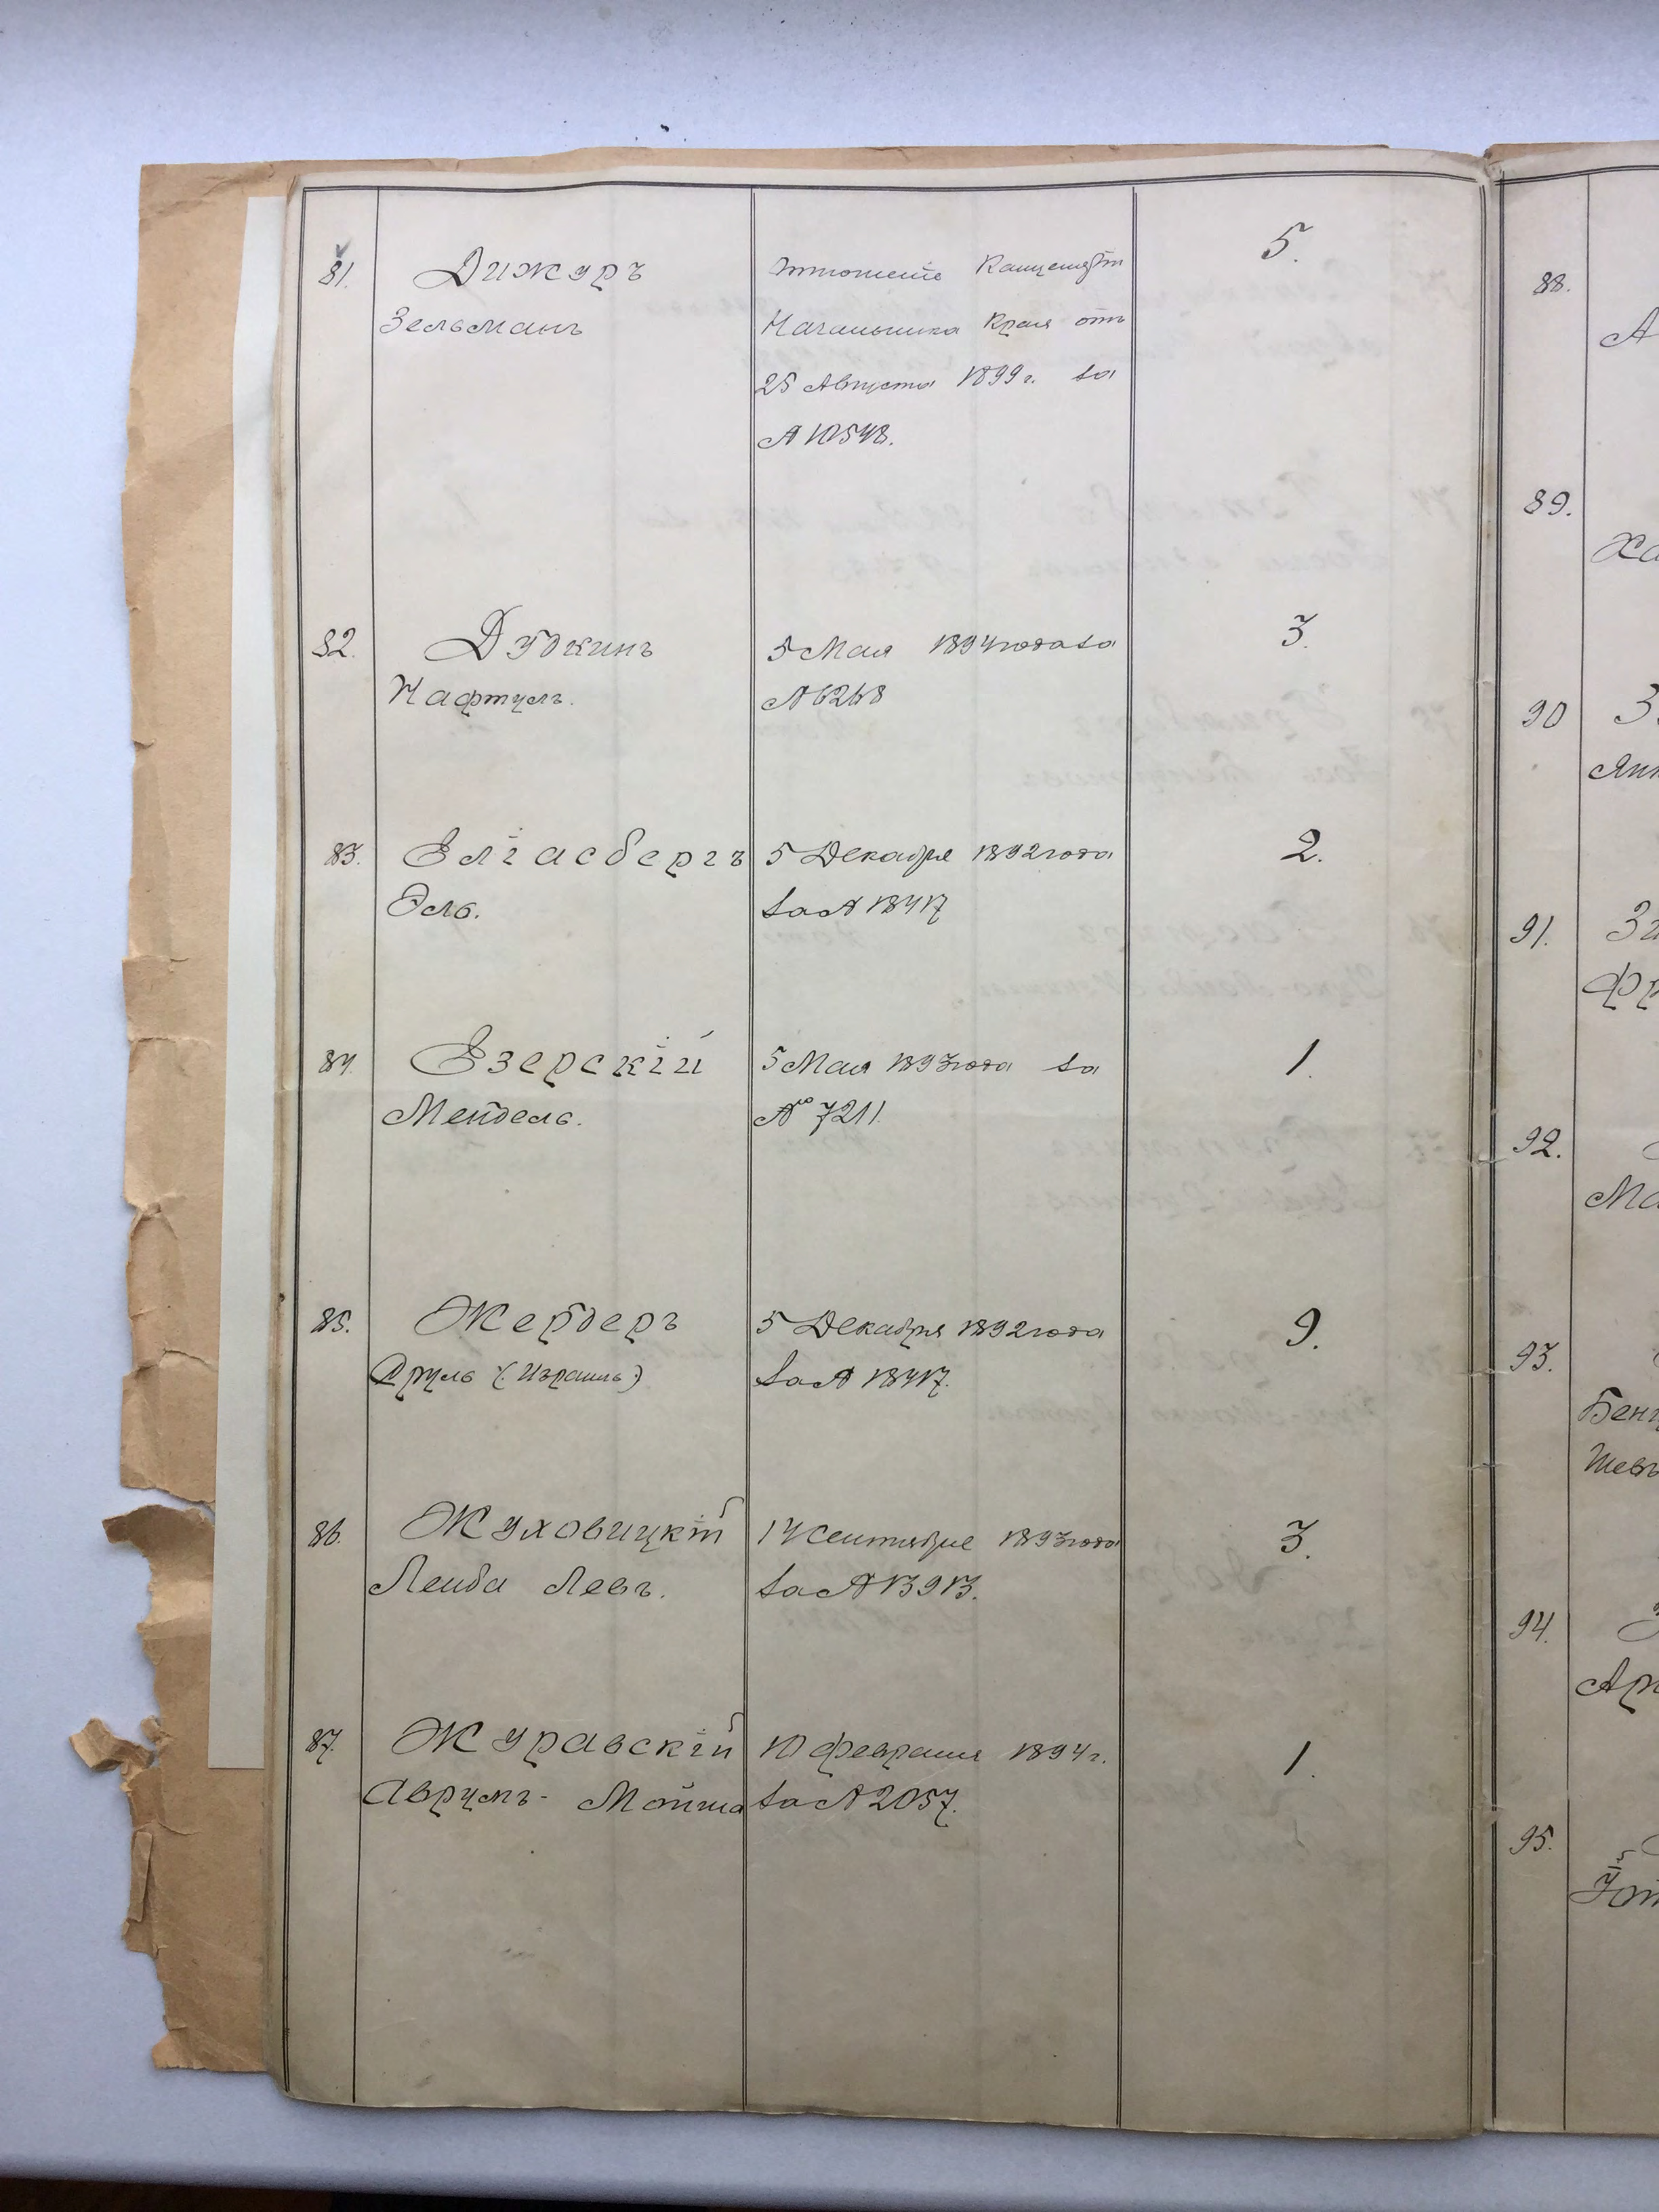 81. Дижуръ
Зельманъ
Отношеніе Канцеляріи
Начальника Края отъ
25 Августа 1899 г. за
№ 10548.
5.
82. Дудкинъ
Нафтулъ.
5 Мая 1894 года за
№ 6268
3.
83. Еліасбергъ
Эль.
5 Декабря 1892 года
за № 18417
2.
84. Езерскій
Мендель.
5 Мая 1893 года за
№ 7211.
1.
85. Жердеръ
Сруль (Израиль)
5 Декабря 1892 года
за № 18417.
9.
86. Жуховицкій
Лейба Левъ.
14 Сентября 1893 года
за № 13913.
3.
87. Журавскій
Аврумъ-Мойша
10 февраля 1894 г.
за № 2057.
1.
88.
А
89.
Ха
90 З
Янк
91. Зи
Фр
92.
Ма
93.
Бенц
Шевъ
94.
Ар
95.